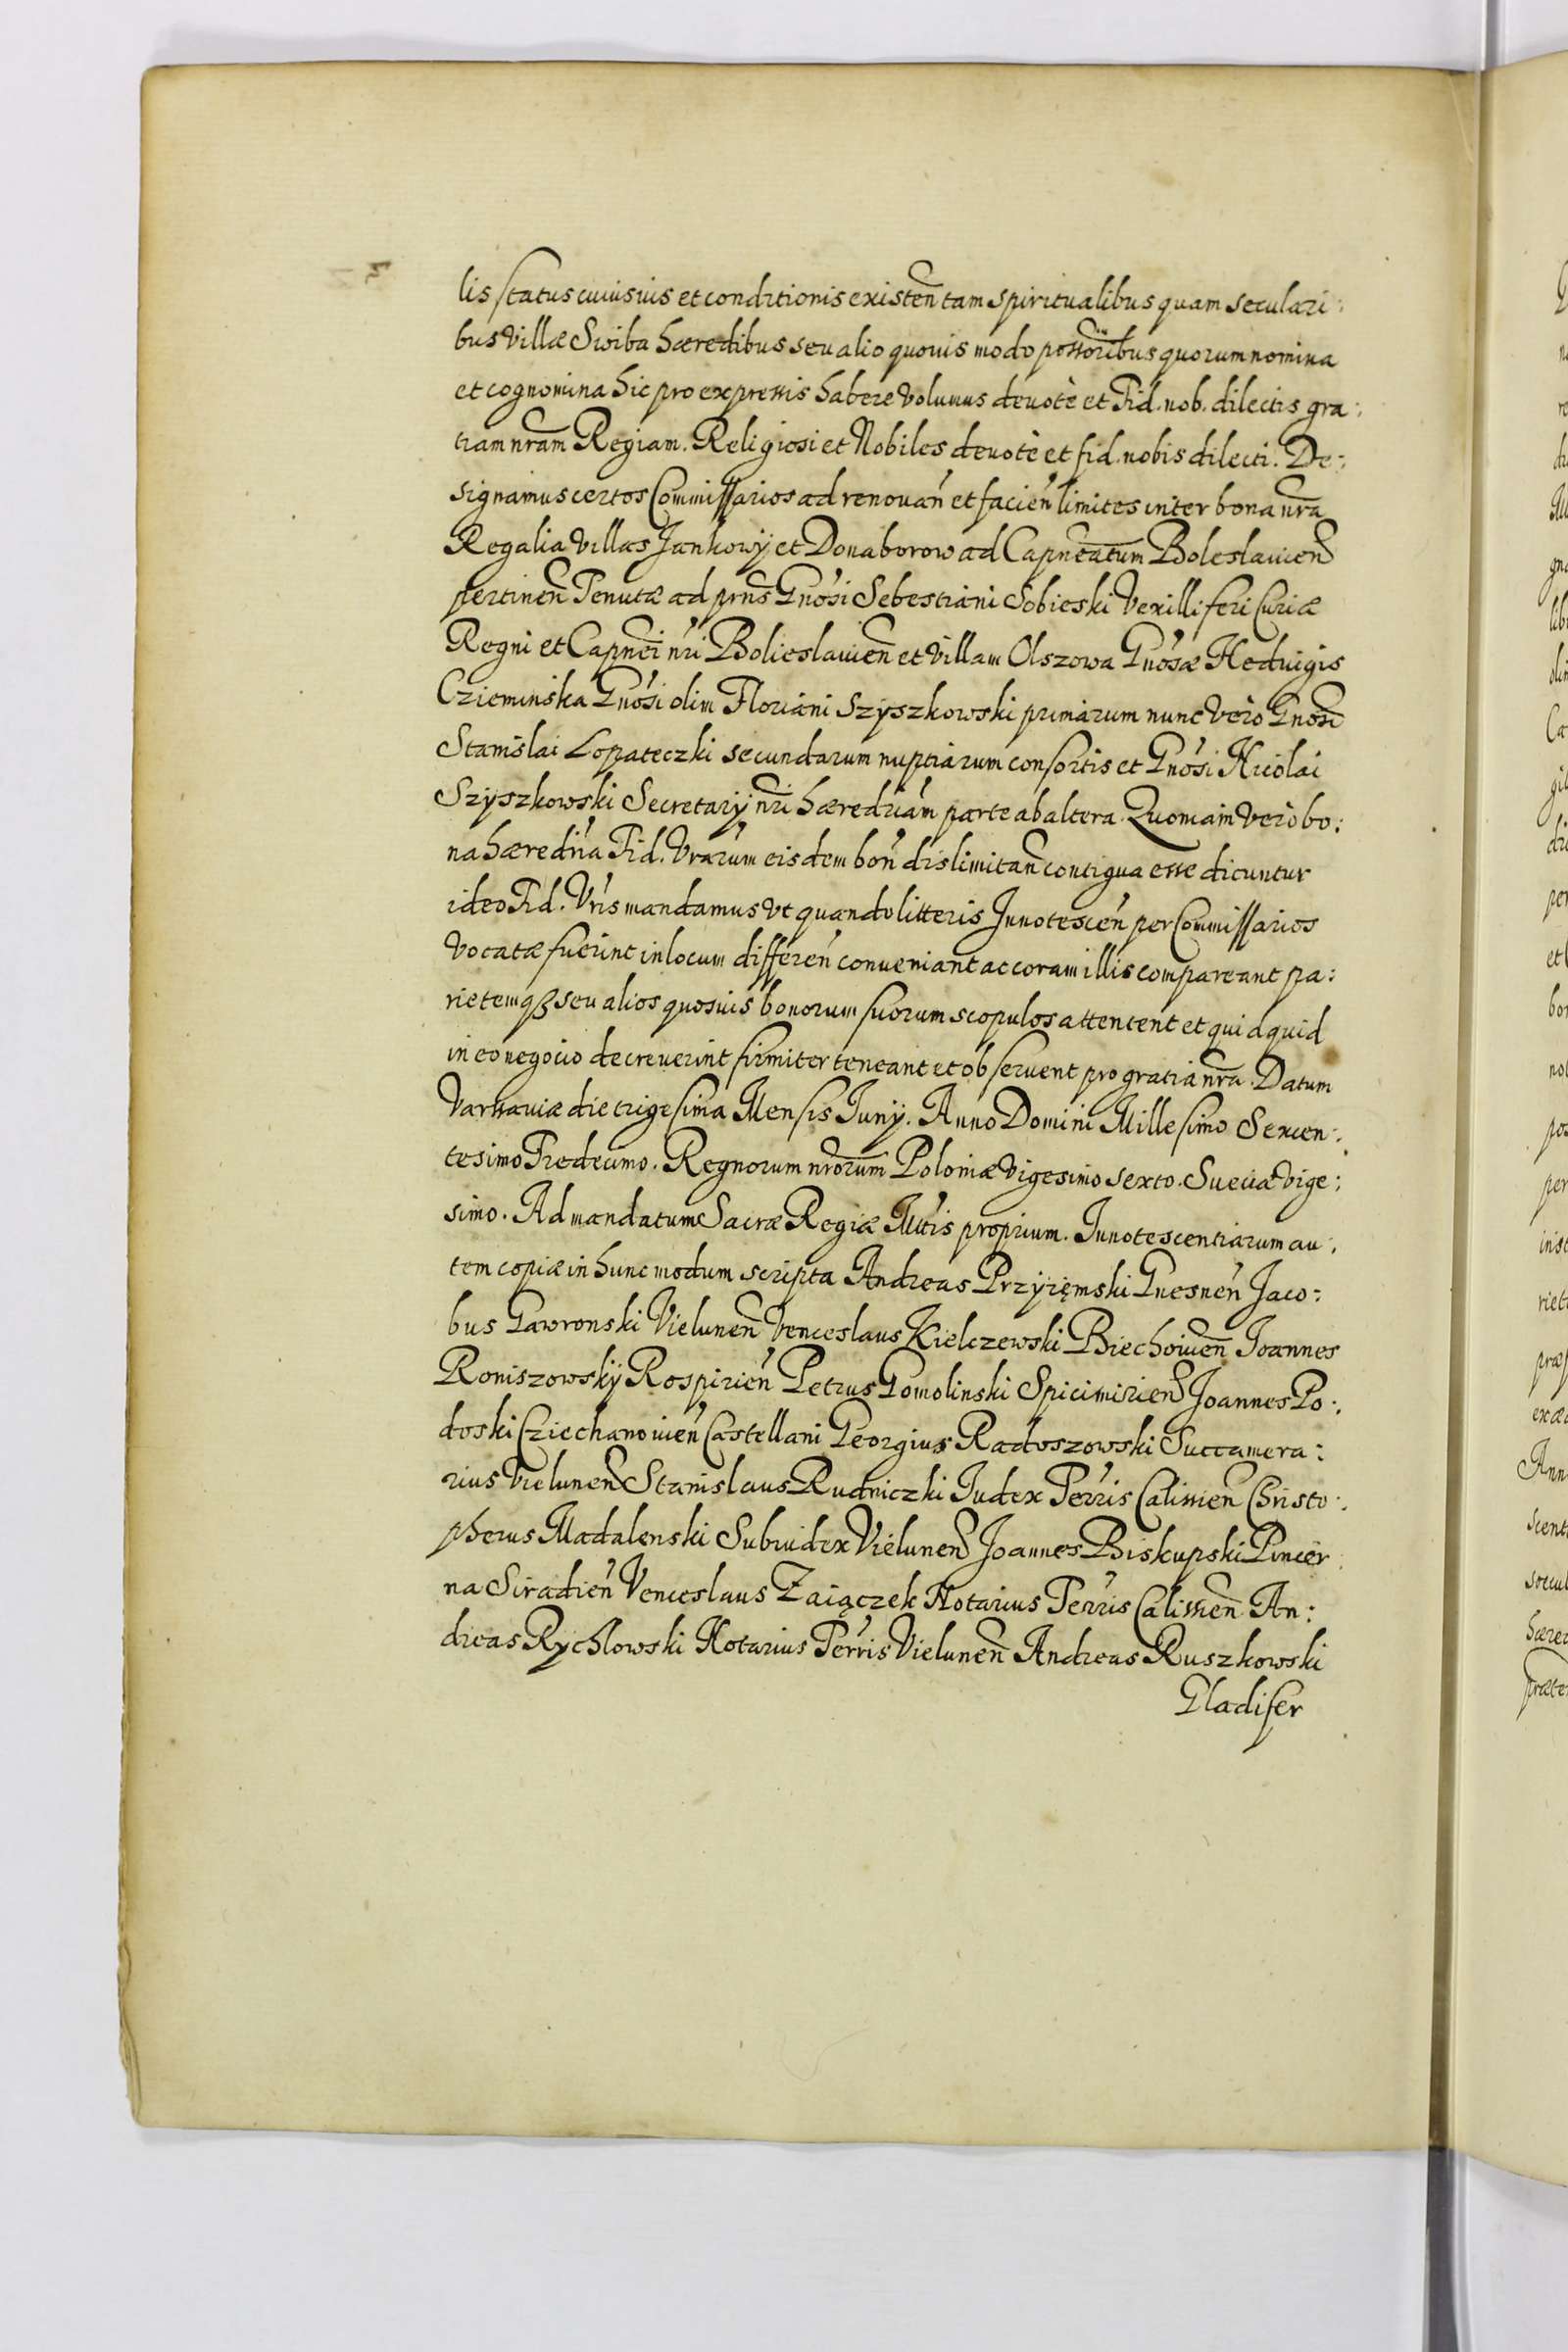 lis status cuiusuis et conditionis existen̄ tam spiritualibus quam seculari:
bus villæ Swiba hæredibus seu alio quouis modo possoribus quorum nomina
et cognomina hic pro expressis habere volumus deuotè et Fid. nob. dilectis gra:
tiam nr̄am Regiam. Religiosi et Nobiles deuotè et fid. nobis dilecti. De:
signamus certos Commissarios ad renouan̄ et facien̄ limites inter bona nr̄a
Regalia villas Jankowÿ et Donaborow ad Capn̄eatum Boleslauien̄
pertinen̄ Tenutæ ad prn̄s Gn̄osi Sebestiani Sobieski Vexilliferi Curiæ
Regni et Capn̄ei nr̄i Bolieslauien̄ et villam Olszowa Gn̄osæ Hedvigis
Czieminska Gn̄osi olim Floriani Szyszkowski primarum nunc verò Gn̄osi
Stanislai Lopateczki secundarum nuptiarum consortis et Gn̄osi Nicolai
Szyszkowski Secretarij nr̄i hærediam̄ parte ab altera. Quoniam verò bo:
na hæredria Fid. Vrarum eisdem bon̄ dislimitan̄ contigua esse dicuntur
ideo Fid. Vr̄is mandamus vt quando litteris Innotescen̄ per Commissarios
vocatæ fuerint in locum differen̄ conueniant ac coram illis compareant pa:
rietemqꝫ seu alios quosuis bonorum suorum scopulos attentent et quidquid
in eo negocio decreuerint firmiter teneant et obseruent pro gratia nr̄a. Datum
Varsauiæ die trigesima Mensis Iunij. Anno Domini Millesimo Sexcen:
tesimo Tredecimo. Regnorum nrōrum Poloniæ vigesimo sexto. Sueciæ vige:
simo. Ad mandatum Sacræ Regiæ Mtis proprium. Innotescentiarum au:
tem copiæ in hunc modum scripta Andreas Przyięmski Gnesnen̄ Jaco:
bus Gawronski Vielunen̄ Venceslaus Kielczewski Biechouien̄ Joannes
Roniszowskÿ Rospirien̄ Petrus Gomolinski Spicimirien̄ Joannes Po:
doski Cziechanouien̄ Castellani Georgius Radoszowski Succamera:
rius Vielunen̄ Stanislaus Rudniczki Iudex Terris Calissien̄ Christo:
pherus Madalenski Subiudex Vielunen̄ Joannes Biskupski Pincer
na Siradien̄ Venceslaus Zaiączek Notarius Terris Calissien̄ An:
dreas Rychlowski Notarius Terris Vielunen̄ Andreas Ruszkowski
Gladifer